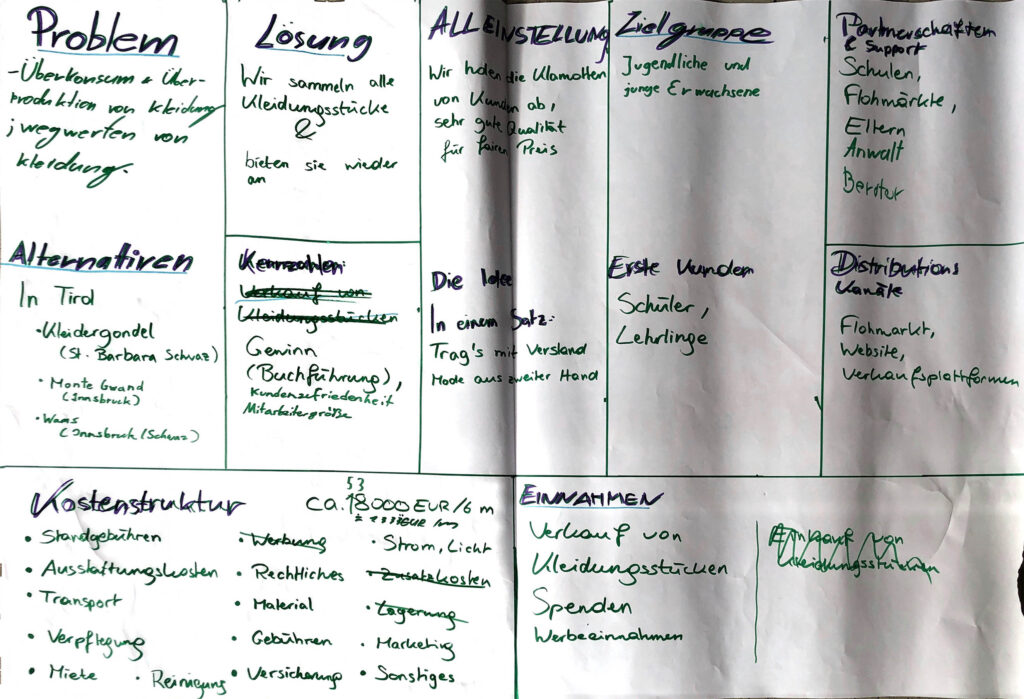 Problem
-Überkonsum & Über-
produktion von Kleidung
; wegwerfen von
Kleidung.
Lösung
Wir sammeln alle
Kleidungsstücke
&
bieten sie wieder
an
ALLEINSTELLUNG
Wir holen die Klamotten
von Kunden ab,
sehr gute Qualität
für fairen Preis
Zielgruppe
Jugendliche und
junge Erwachsene
Partnerschaften
& Support
Schulen,
Flohmärkte,
Eltern
Anwalt
Berater
Alternativen
In Tirol
• Kleidergondel
(St. Barbara Schwaz)
• Monte Gwand
(Innsbruck)
• Wams
(Innsbruck/Schwaz)
Kennzahlen:
Verkauf von
Kleidungsstücken
Gewinn
(Buchführung),
Kundenzufriedenheit
Mitarbeitergröße
Die Idee
In einem Satz:
Trag's mit Verstand
Mode aus zweiter Hand
Erste Kunden
Schüler,
Lehrlinge
Distributions
Kanäle
Flohmarkt,
Website,
Verkaufsplattformen
Kostenstruktur
53
ca. 18000 EUR/6 m
• Standgebühren
• Ausstattungskosten
• Transport
• Verpflegung
• Miete
• Reinigung
• Werbung
• Rechtliches
• Material
• Gebühren
• Versicherung
• Strom, Licht
• Zusatzkosten
• Lagerung
• Marketing
• Sonstiges
EINNAHMEN
Verkauf von
Kleidungsstücken
Spenden
Werbeeinnahmen
Einkauf von
Kleidungsstücken